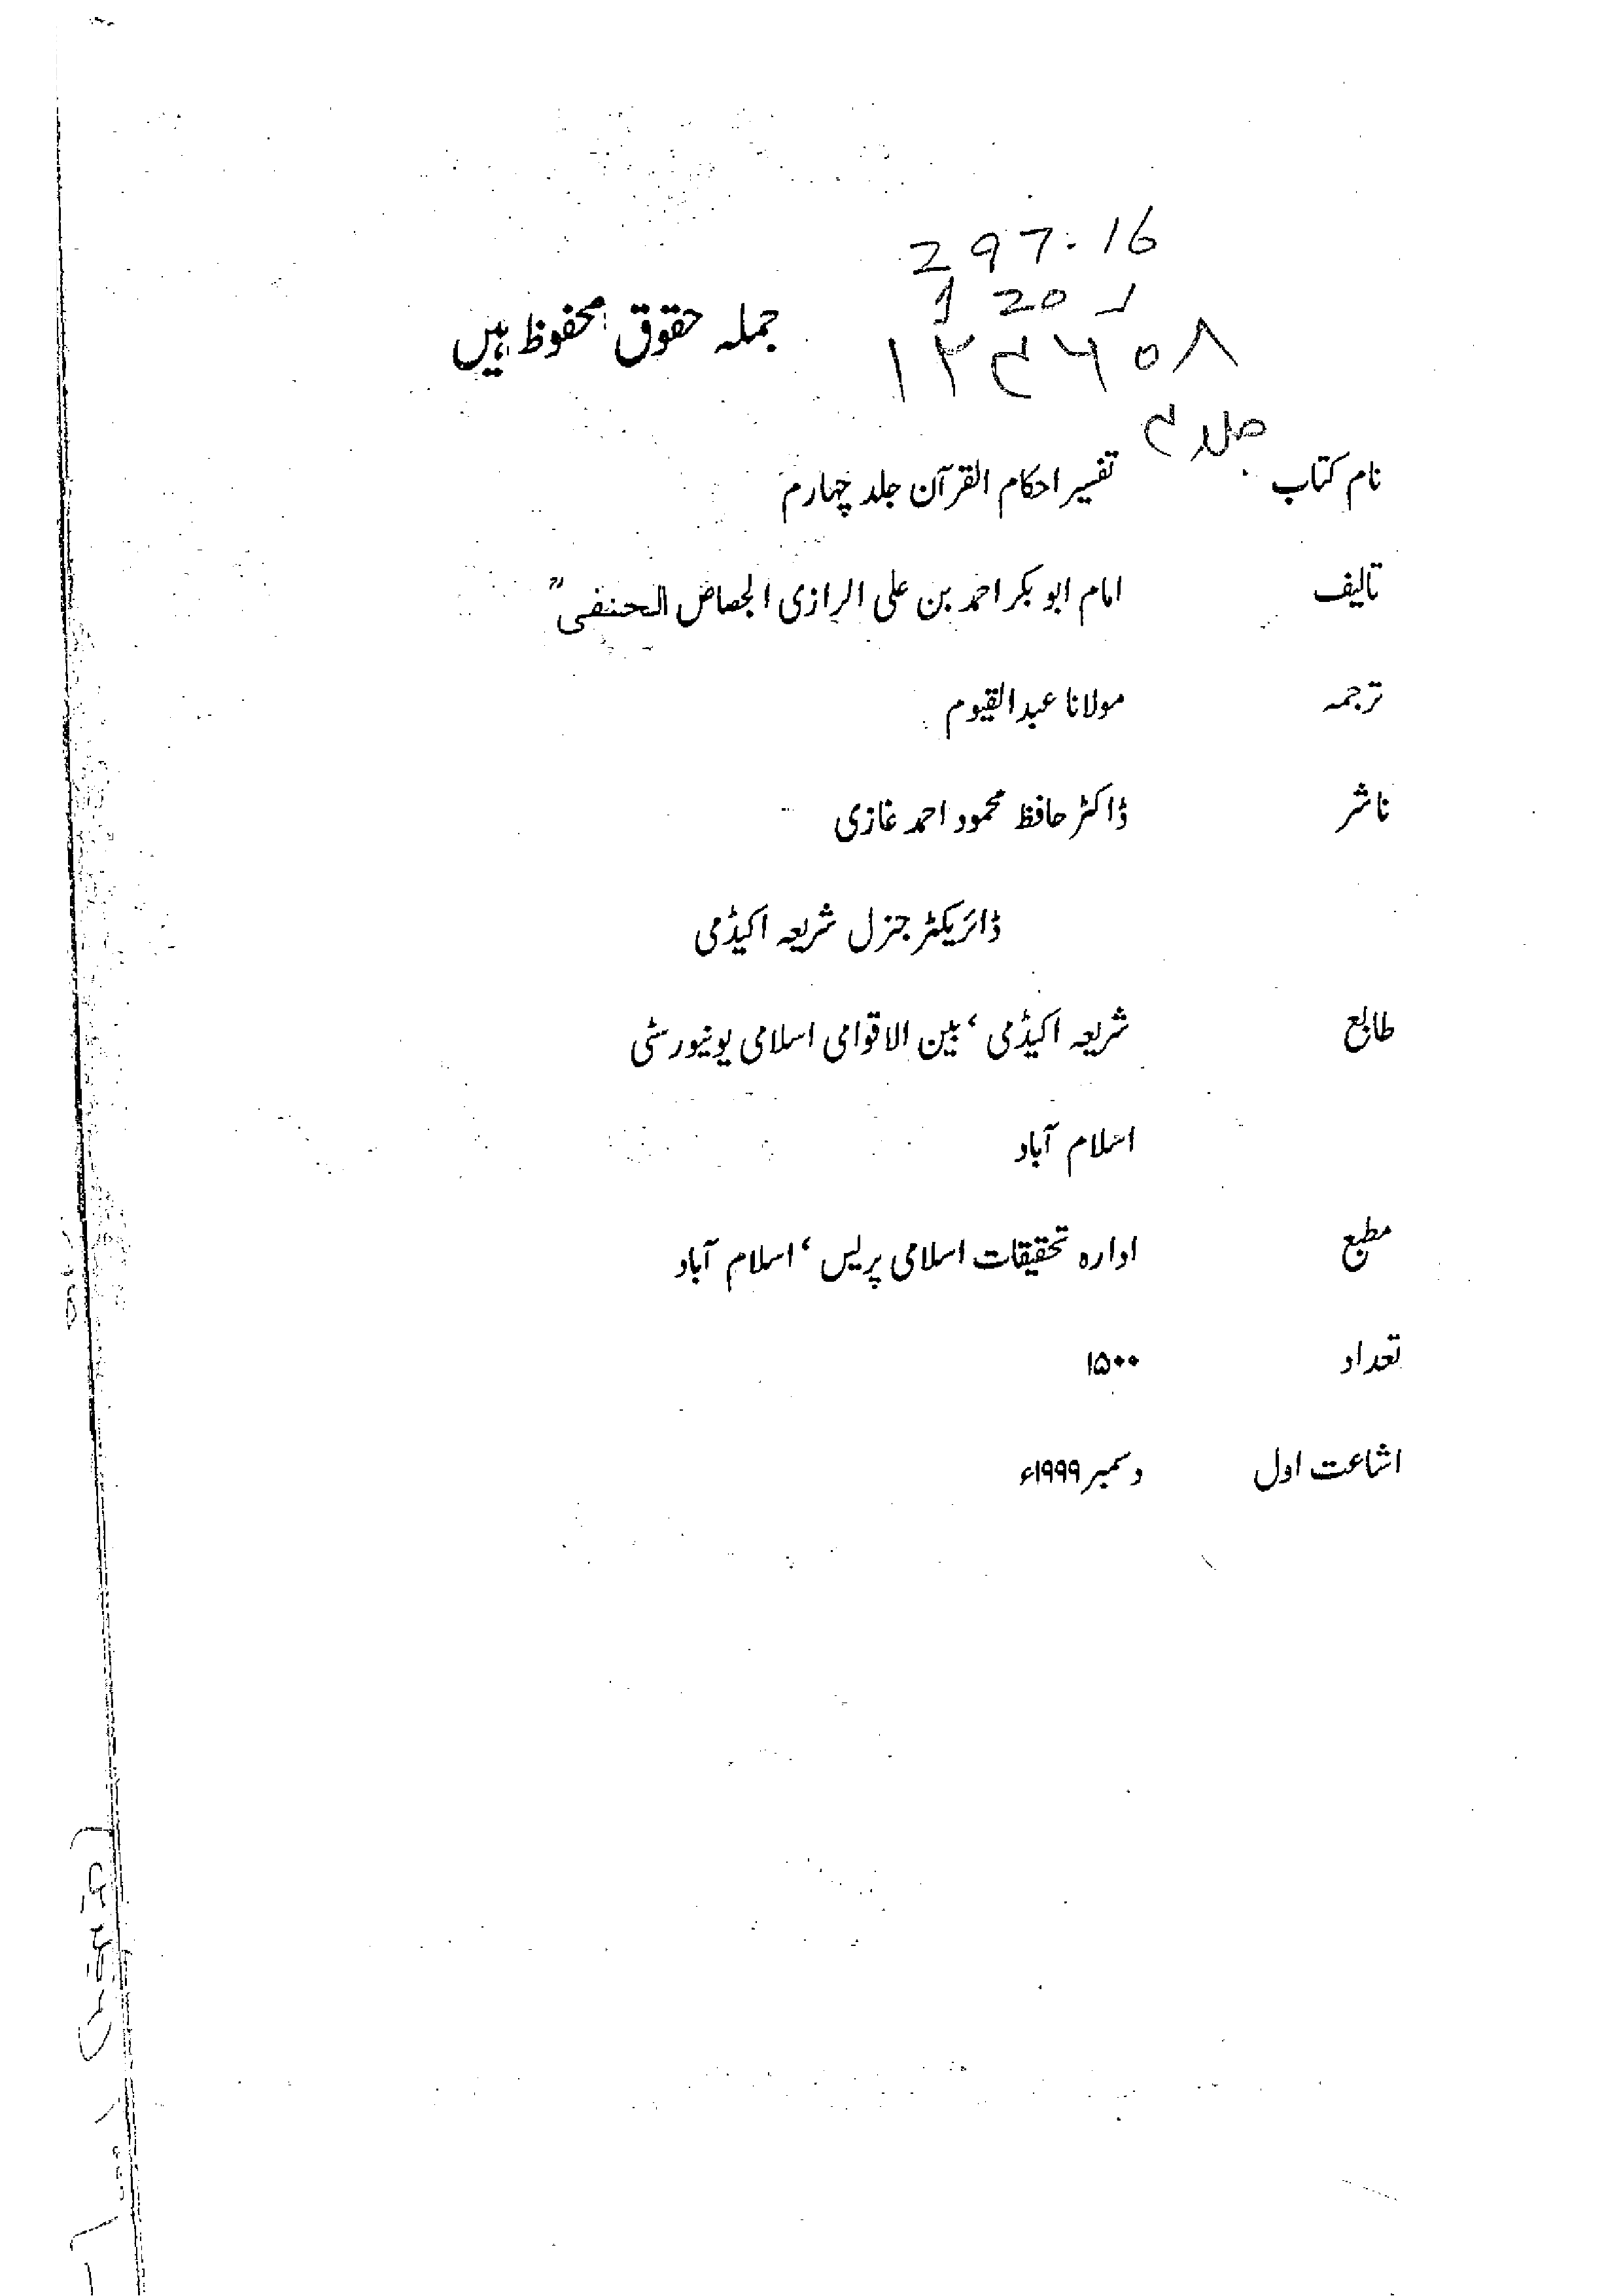 297.16
جملہ حقوق محفوظ ہیں
۱۲۴۶۰۸
جلد ۴
نام کتاب تفسیر احکام القرآن جلد چہارم
تالیف امام ابو بکر احمد بن علی الرازی الجصاص الحنفیؒ
ترجمہ مولانا عبدالقیوم
ناشر ڈاکٹر حافظ محمود احمد غازی
ڈائریکٹر جنرل شریعہ اکیڈمی
طابع شریعہ اکیڈمی، بین الاقوامی اسلامی یونیورسٹی
اسلام آباد
مطبع ادارہ تحقیقات اسلامی پریس، اسلام آباد
تعداد ۱۵۰۰
اشاعت اول دسمبر ۱۹۹۹ء